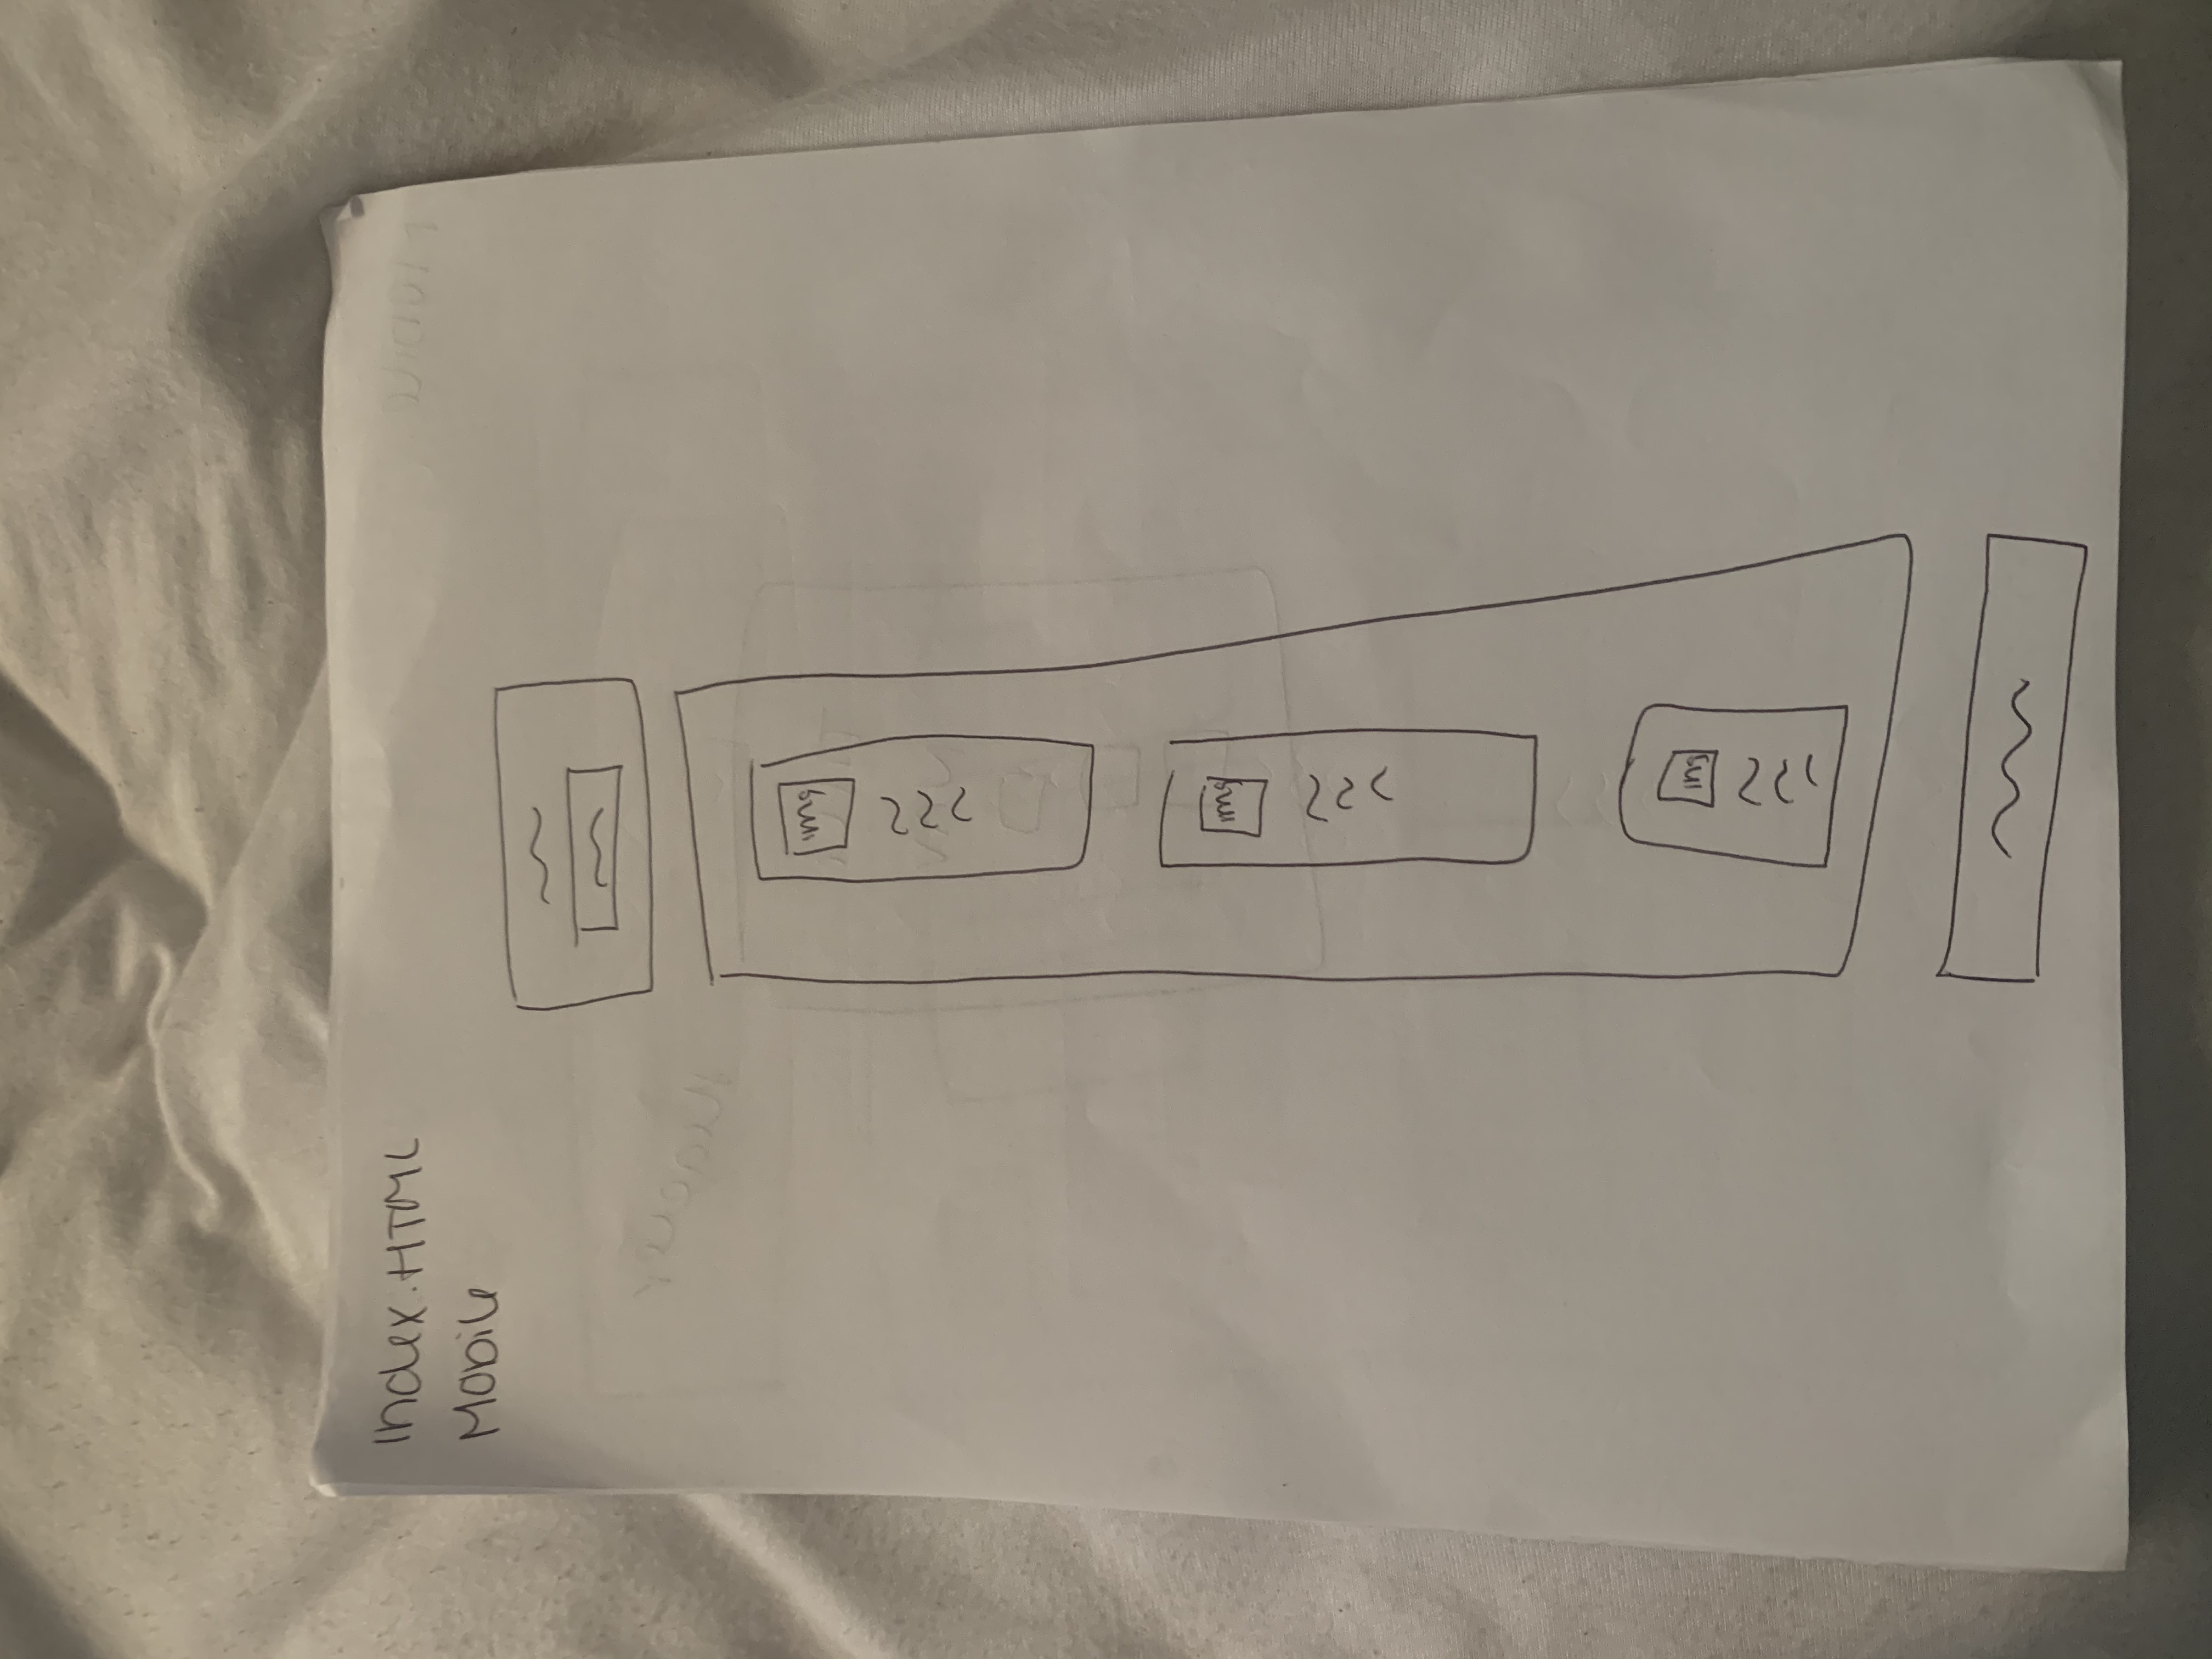 Index.HTML
Mobile
img
img
img